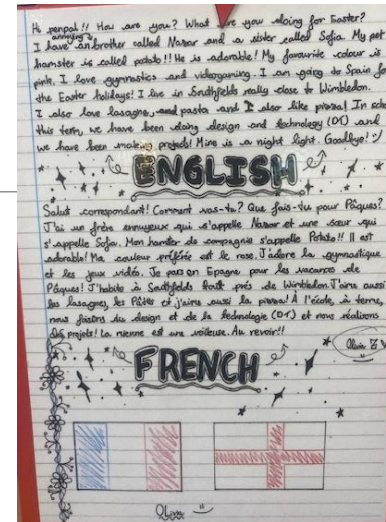 Hi penpal!! How are you? What are you doing for Easter?
annoying
I have an brother called Nazar and a sister called Sofia. My pet
hamster is called potato!! He is adorable! My favourite colour is
pink. I love gymnastics and videogaming. I am going to Spain for
the Easter holidays! I live in Southfields really close to Wimbledon.
I also love lasagne, and pasta and I also like pizza! In
this term, we have been doing design and technology (DT) and
we have been making projects! Mine is a night light. Goodbye! :)
ENGLISH
Salut correspondant! Comment vas-tu? Que fais-tu pour Pâques?
J'ai un frère ennuyeux qui s'appelle Nazar et une sœur qui
s'appelle Sofia. Mon hamster de compagnie s'appelle Potato!! Il est
adorable! Ma couleur préférée est le rose. J'adore la gymnastique
et les jeux vidéo. Je pars en Espagne pour les vacances de
Pâques! J'habite à Southfields tout près de Wimbledon. J'aime aussi
les lasagnes, les Pâtes et j'aime aussi la pizza! À l'école, à terms,
nous faisons du design et de la technologie (DT) et nous réalisons
des projets! La mienne est une veilleuse. Au revoir!!
Olivia Z
FRENCH
Olivia